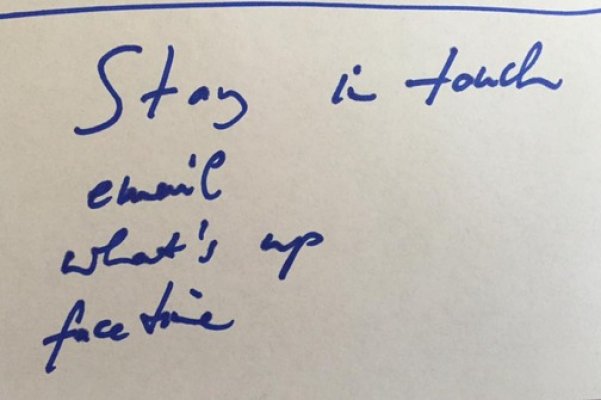 Stay in touch
email
what's up
facetime